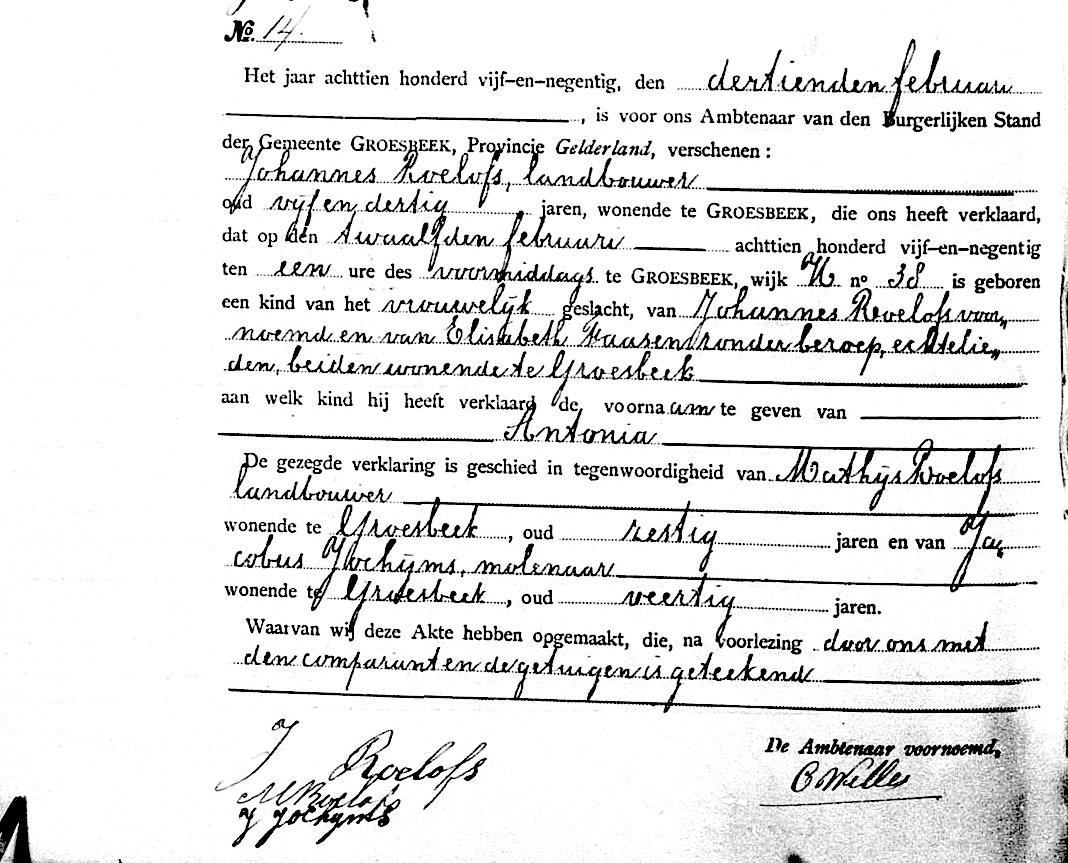 No. 14.
Het jaar achttien honderd vijf-en-negentig, den dertienden februari
, is voor ons Ambtenaar van den Burgerlijken Stand
der Gemeente GROESBEEK, Provincie Gelderland, verschenen :
Johannes Roelofs, landbouwer
oud vijf en dertig jaren, wonende te GROESBEEK, die ons heeft verklaard,
dat op den twaalfden februari achttien honderd vijf-en-negentig
ten een ure des voormiddags te GROESBEEK, wijk H no 38 is geboren
een kind van het vrouwelijk geslacht, van Johannes Roelofs voor„
noemd en van Elisabeth Faasen zonder beroep, echtelie„
den, beiden wonende te Groesbeek
aan welk kind hij heeft verklaard de voornaam te geven van
Antonia
De gezegde verklaring is geschied in tegenwoordigheid van Mathijs Roelofs
landbouwer
wonende te Groesbeek, oud zestig jaren en van Ja„
cobus Jochijms, molenaar
wonende te Groesbeek, oud veertig jaren.
Waarvan wij deze Akte hebben opgemaakt, die, na voorlezing door ons met
den comparant en de getuigen is geteekend
J Roelofs
De Ambtenaar voornoemd,
M Roelofs
J Jochijms